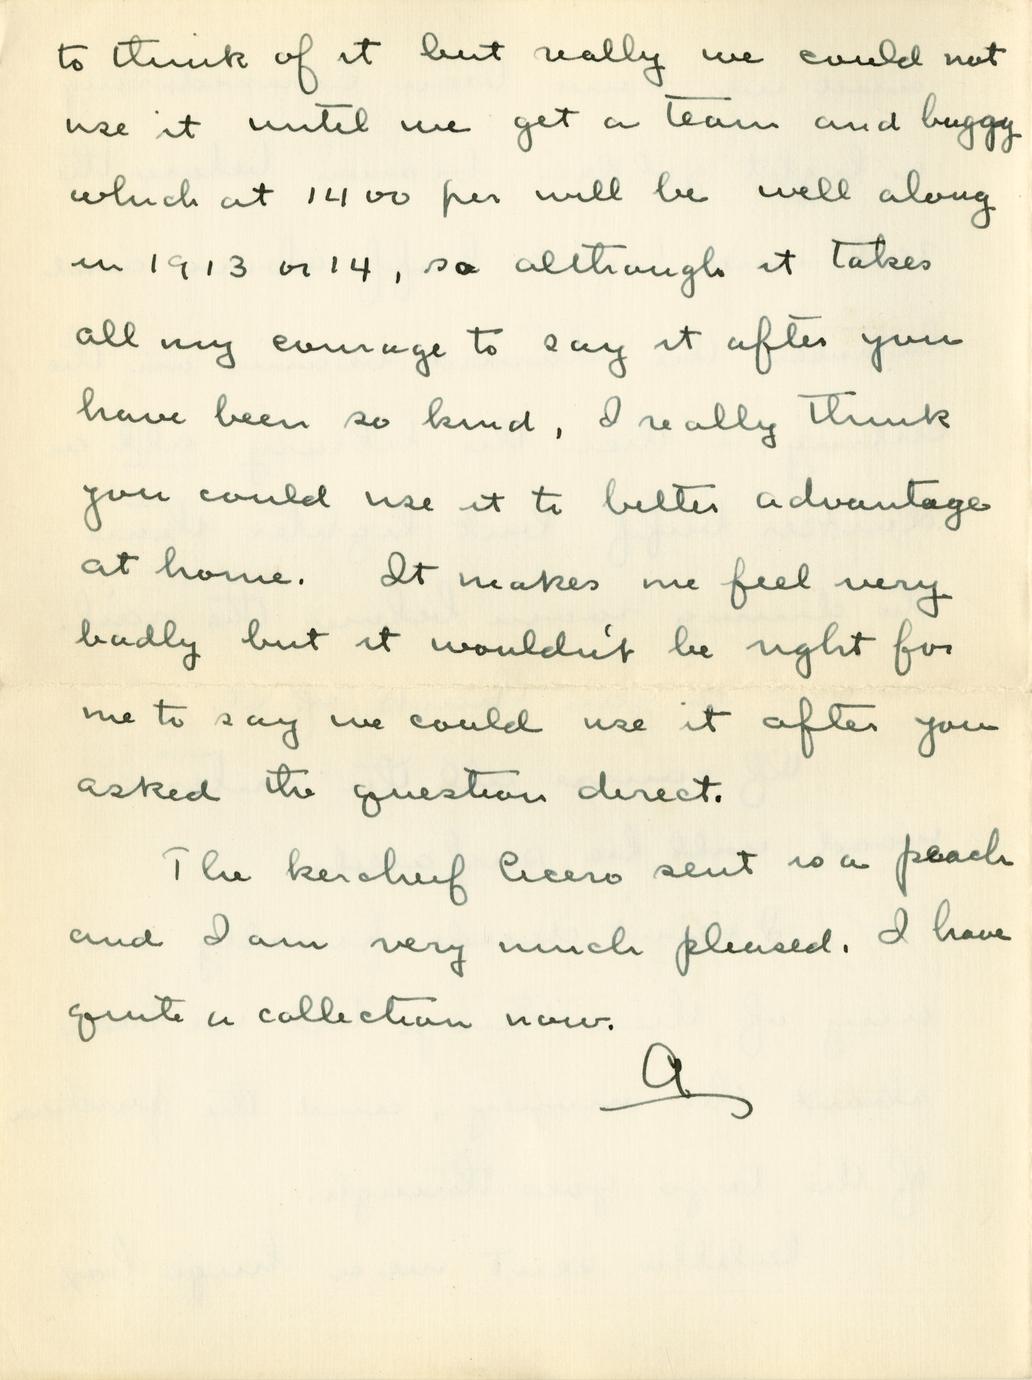 to think of it but really we could not
use it until we get a team and buggy
which at 1400 per will be well along
in 1913 or 14, so although it takes
all my courage to say it after you
have been so kind, I really think
you could use it to better advantage
at home. It makes me feel very
badly but it wouldn't be right for
me to say we could use it after you
asked the question direct.
The kercheif Cicero sent is a peach
and I am very much pleased. I have
quite a collection now.
A